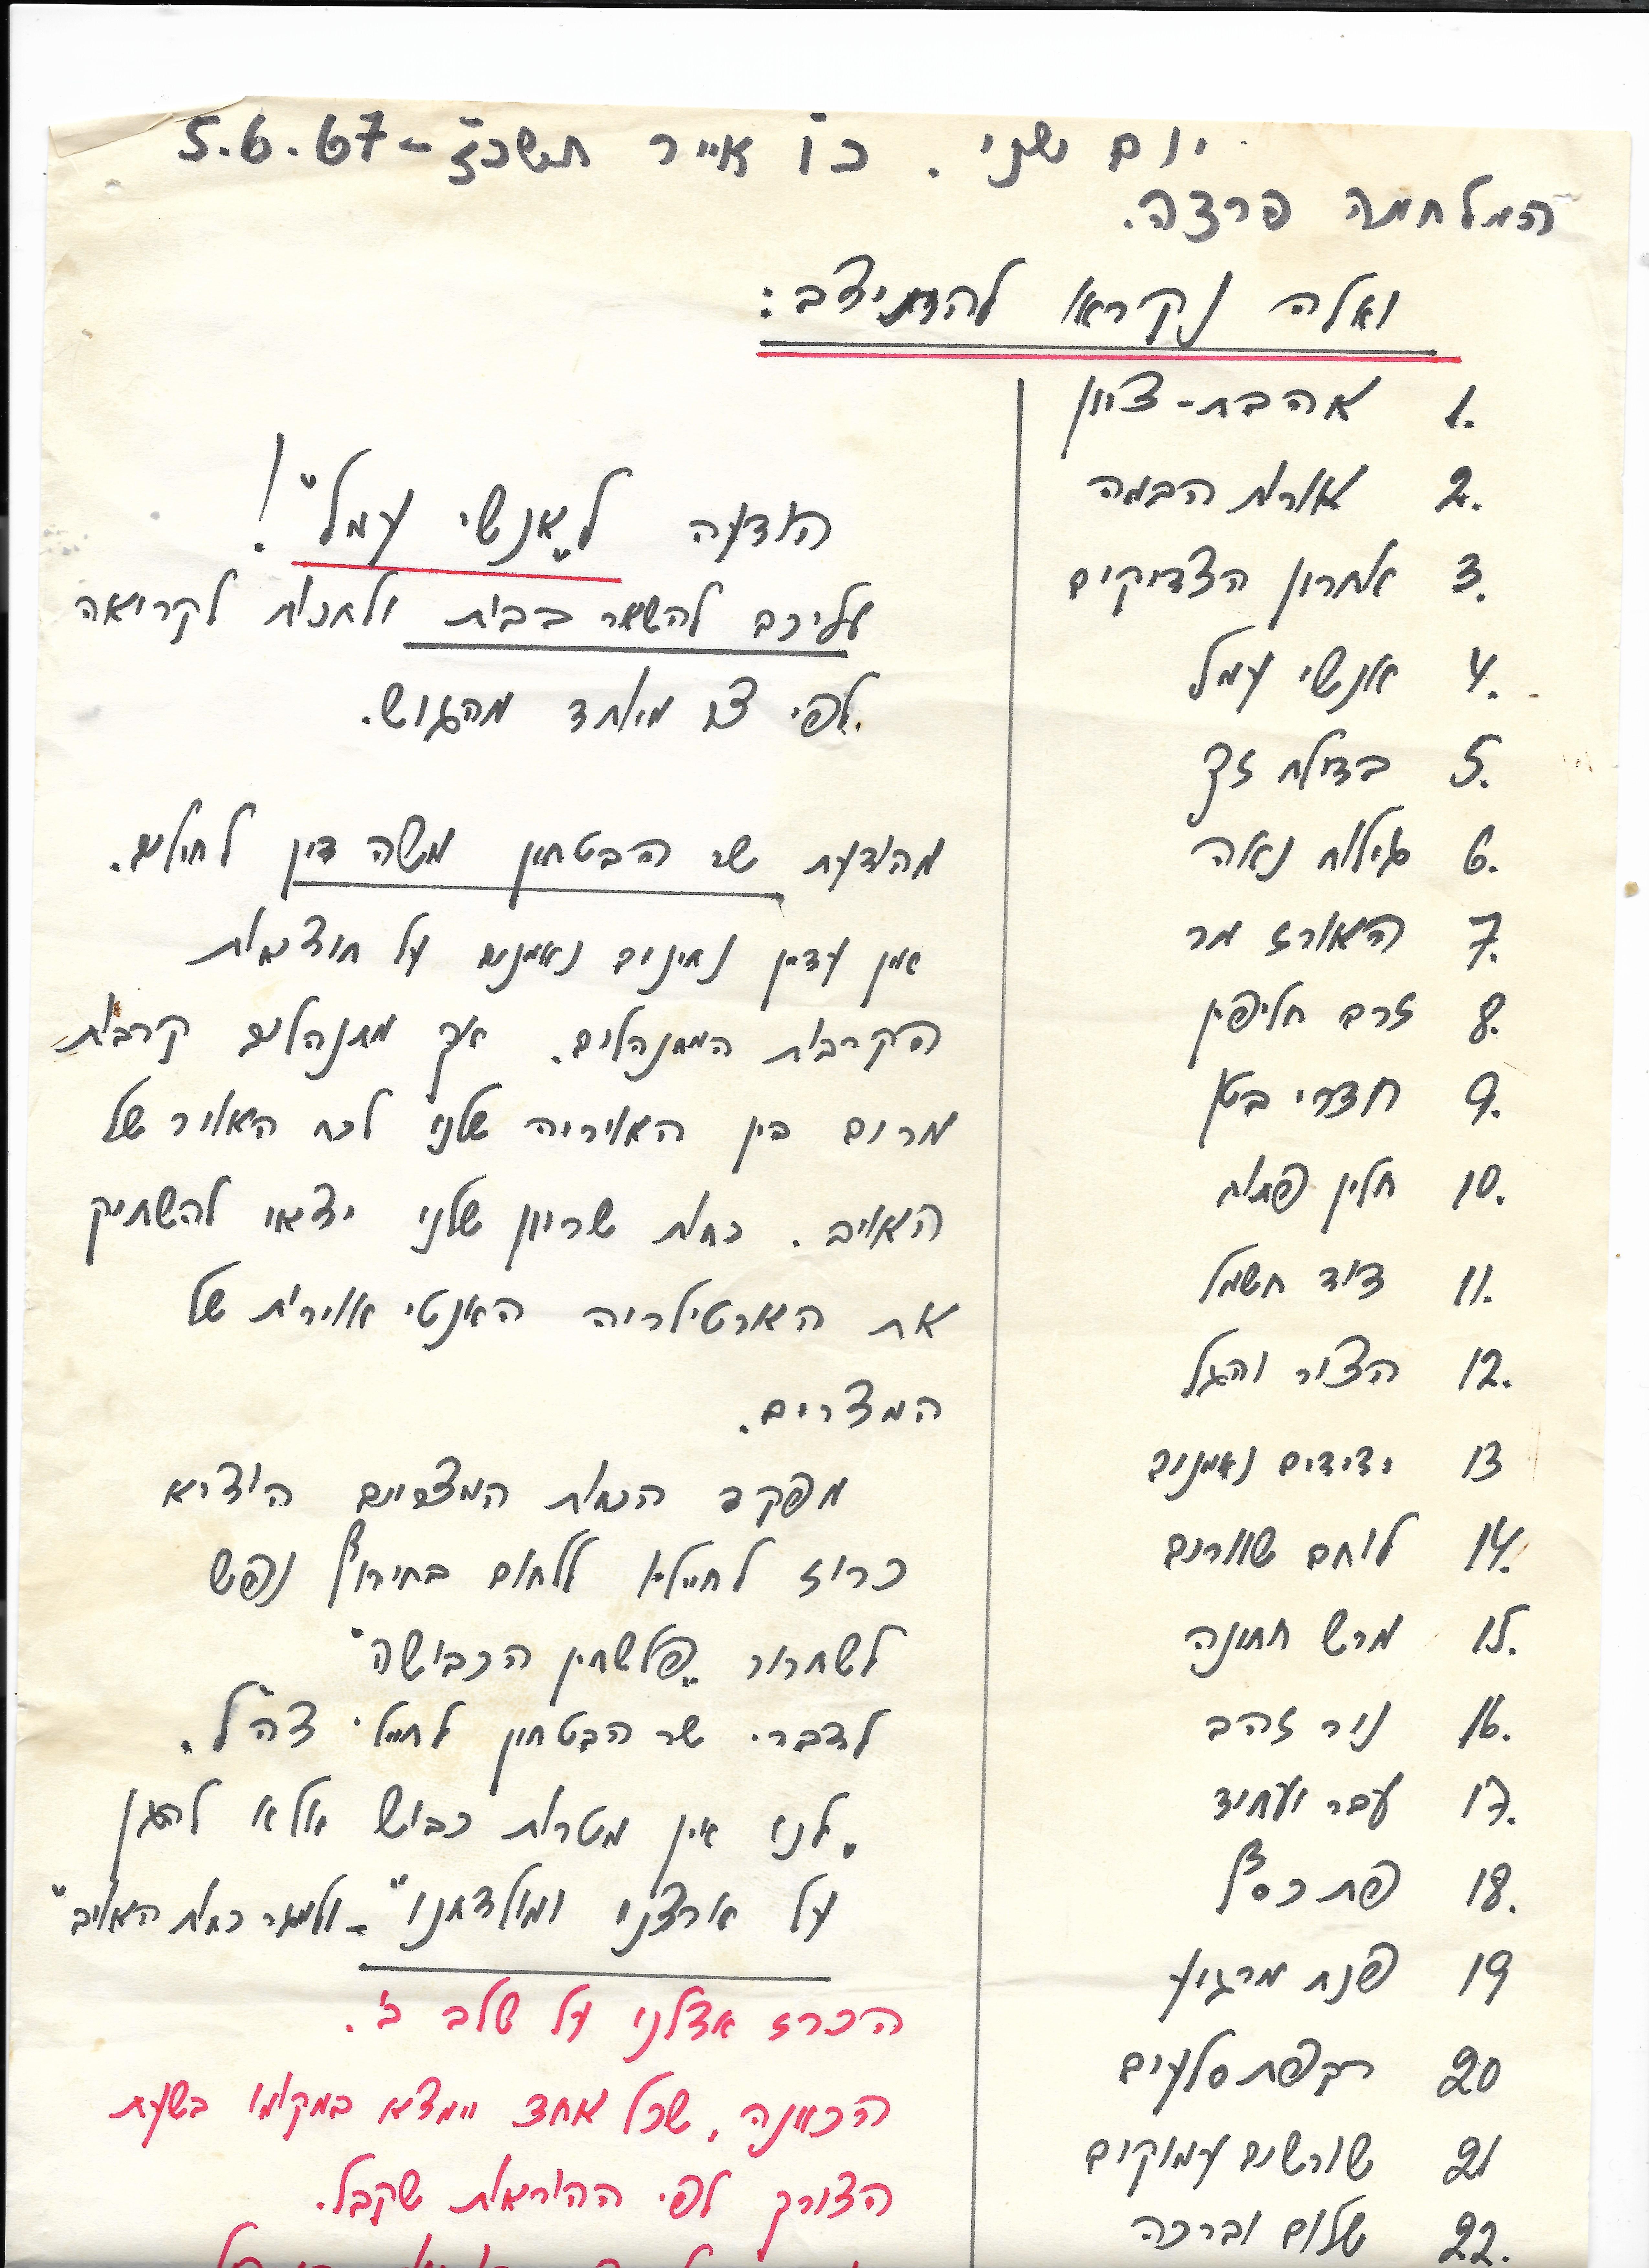 יום שני. כ"ו אייר תשכ"ז - 5.6.67
המלחמה פרצה.
ואלה נקראו להתיצב:
1. אהבת-ציון
2. אורות הבמה
3. אחרון הצדיקים
4. אנשי עמל
5. בדולח זך
6. גילוח נאה
7. האורז מר
8. זרם חליפין
9. חדרי בטן
10. חלון פתוח
11. דוד חשמל
12. הצור והגל
13 ידידים נאמנים
14. לוחם שוורים
15. מרש חתונה
16. נזר זהב
17. עבר ועתיד
18. פת כס"ל
19 פנת מרגוע
20 רקפת סלעים
21 שורשים עמוקים
22. שלום וברכה
הודעה ל"אנשי עמל"!
עליכם להשאר בבית ולחכות לקריאה
לפי צו מיוחד מהגוש.
מהודעת שר הבטחון משה דין לחילים.
אין עדיין נתונים נאמנים על תוצאות
הקרבות המתנהלים. אך מתנהלים קרבות
מרום בין האויריה שלנו לכח האויר של
האויב. כחות שריון שלנו יצאו להשתיק
את הארטילריה האנטי אוירית של
המצרים.
מפקד הכחות המצריים הוציא
כרוז לחייליו ללחום בחירוף נפש
לשחרור "פלשתין הכבושה"
לדברי שר הבטחון לחיילי צה"ל.
"לנו אין מטרות כבוש אלא להגן
על ארצנו ומולדתנו" - ולמגר כחות האויב"
הכרז אצלנו על שלב ב'.
הכוונה, שכל אחד יימצא במקומו בשעת
הצורך לפי ההוראות שקבל.